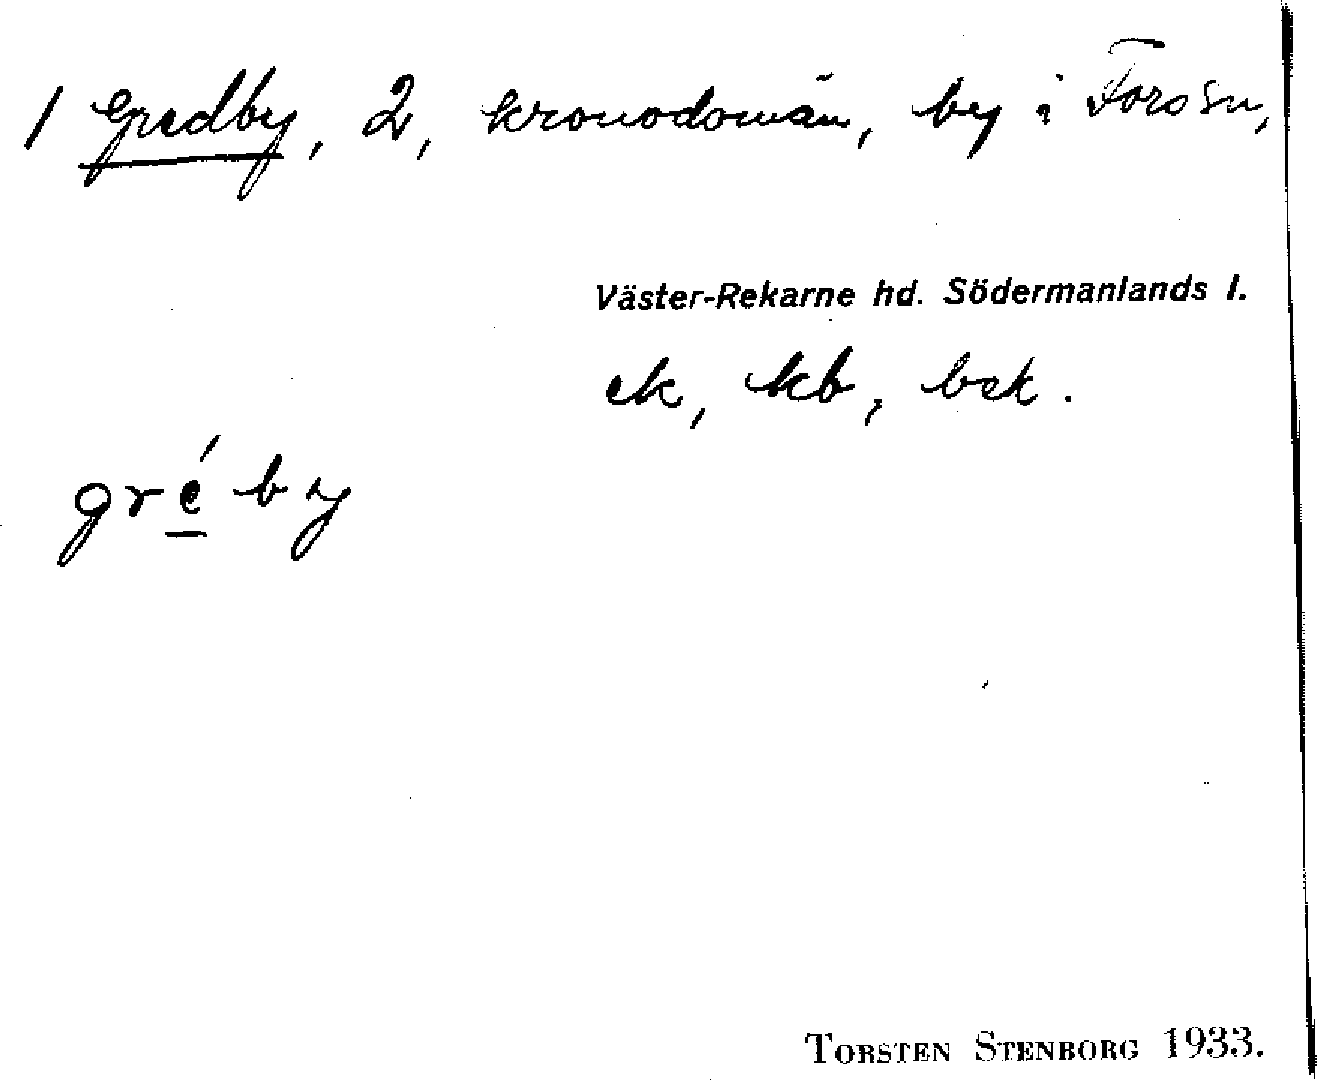 1 Gredby, 2, kronodomän, by i Fors sn,
Väster-Rekarne hd. Södermanlands l.
ek, kb, bek.
gréby
TORSTEN STENBORG 1933.